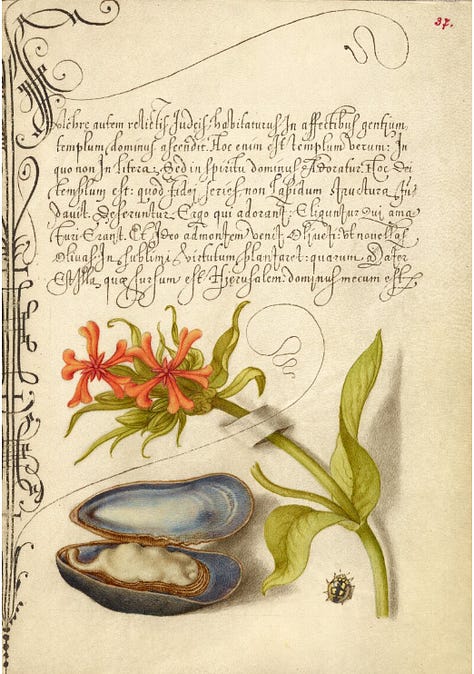 37.
autem relictis Iudeis, habitaturus In affectibus gentium,
templum dominus ascendit. Hoc enim est templum verum: In
quo non In litera, Sed in spiritu dominus Adoratur. Hoc Dei
templum est: quod fidei series non lapidum structura fu
dauit. Deseruntur Ergo qui adorant: Eliguntur Qui ama
turi Erant. Et Ideo ad montem venit Oliueti: vt nouellas
Oliuas In sublimi virtutum plantaret: quarum Mater
Est illa, quæ sursum est Hierusalem. dominus mecum est